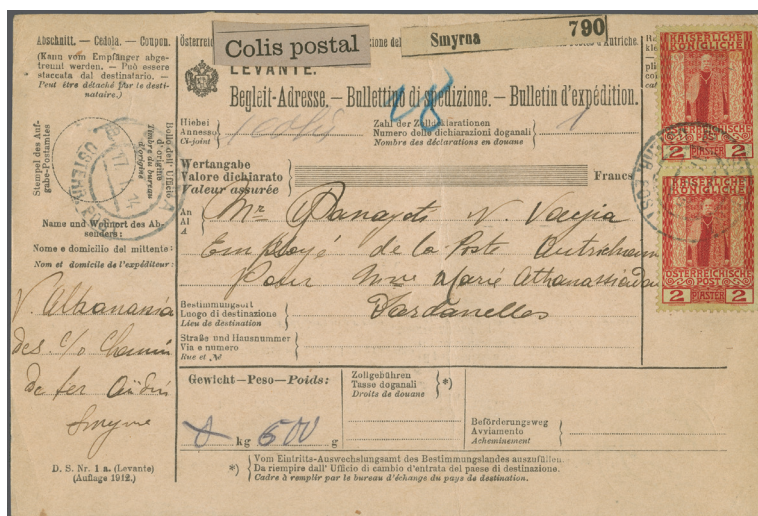 Abschnitt. — Cedola. — Coupon.
(Kann vom Empfänger abge-
trennt werden. — Può essere
staccata dal destinatario. —
Peut être détaché par le desti-
nataire.)
Stempel des Auf-
gabe-Postamtes
Bollo dell' Ufficio
d'origine
Timbre du bureau
d'origine
Name und Wohnort des Ab-
senders:
Nome e domicilio del mittente:
Nom et domicile de l'expéditeur:
V. Athanassia
des c/o Chemin
de fer Aïdin
Smyrne
D. S. Nr. 1 a. (Levante)
(Auflage 1912.)
Colis postal
Smyrna 790
d'Autriche.
LEVANTE.
Begleit-Adresse. — Bullettino di spedizione. — Bulletin d'expédition.
Hiebei
Annesso
Ci-joint
Zahl der Zolldeklarationen
Numero delle dichiarazioni doganali
Nombre des déclarations en douane
1
Wertangabe
Valore dichiarato
Valeur assurée
Francs
An
Al
A
Mr Panajoti N. Vagia
Employé de la Poste Autrichienne
pour Mme Marie Athanassiadou
Bestimmungsort
Luogo di destinazione
Lieu de destination
Dardanelles
Straße und Hausnummer
Via e numero
Rue et №
Gewicht—Peso—Poids:
kg 500 g
Zollgebühren
Tasse doganali
Droits de douane
*)
Beförderungsweg
Avviamento
Acheminement
*)
Vom Eintritts-Auswechslungsamt des Bestimmungslandes auszufüllen.
Da riempire dall' Ufficio di cambio d'entrata del paese di destinazione.
Cadre à remplir par le bureau d'échange du pays de destination.
KAISERLICHE
KÖNIGLICHE
ÖSTERREICHISCHE
POST
2 PIASTER 2
KAISERLICHE
KÖNIGLICHE
ÖSTERREICHISCHE
POST
2 PIASTER 2